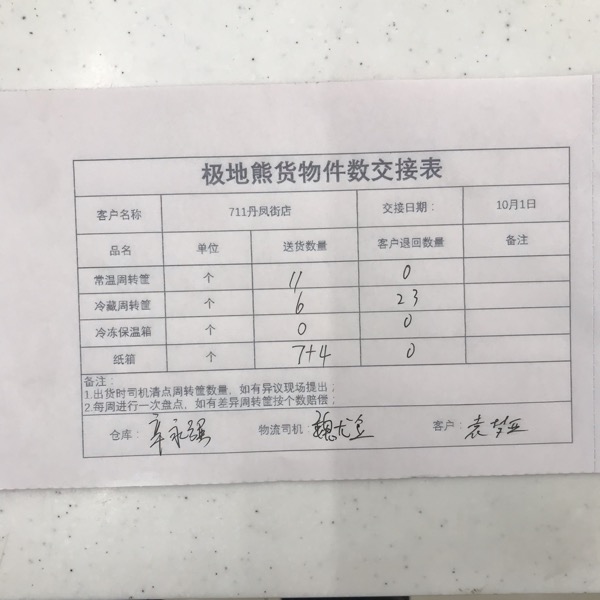 极地熊货物件数交接表
客户名称 711丹凤街店 交接日期： 10月1日
品名 单位 送货数量 客户退回数量 备注
常温周转筐 个 11 0
冷藏周转筐 个 6 23
冷冻保温箱 个 0 0
纸箱 个 7+4 0
备注：
1.出货时司机清点周转筐数量，如有异议现场提出；
2.每周进行一次盘点，如有差异周转筐按个数赔偿；
仓库： 永强 物流司机： 魏 客户： 袁梦亚